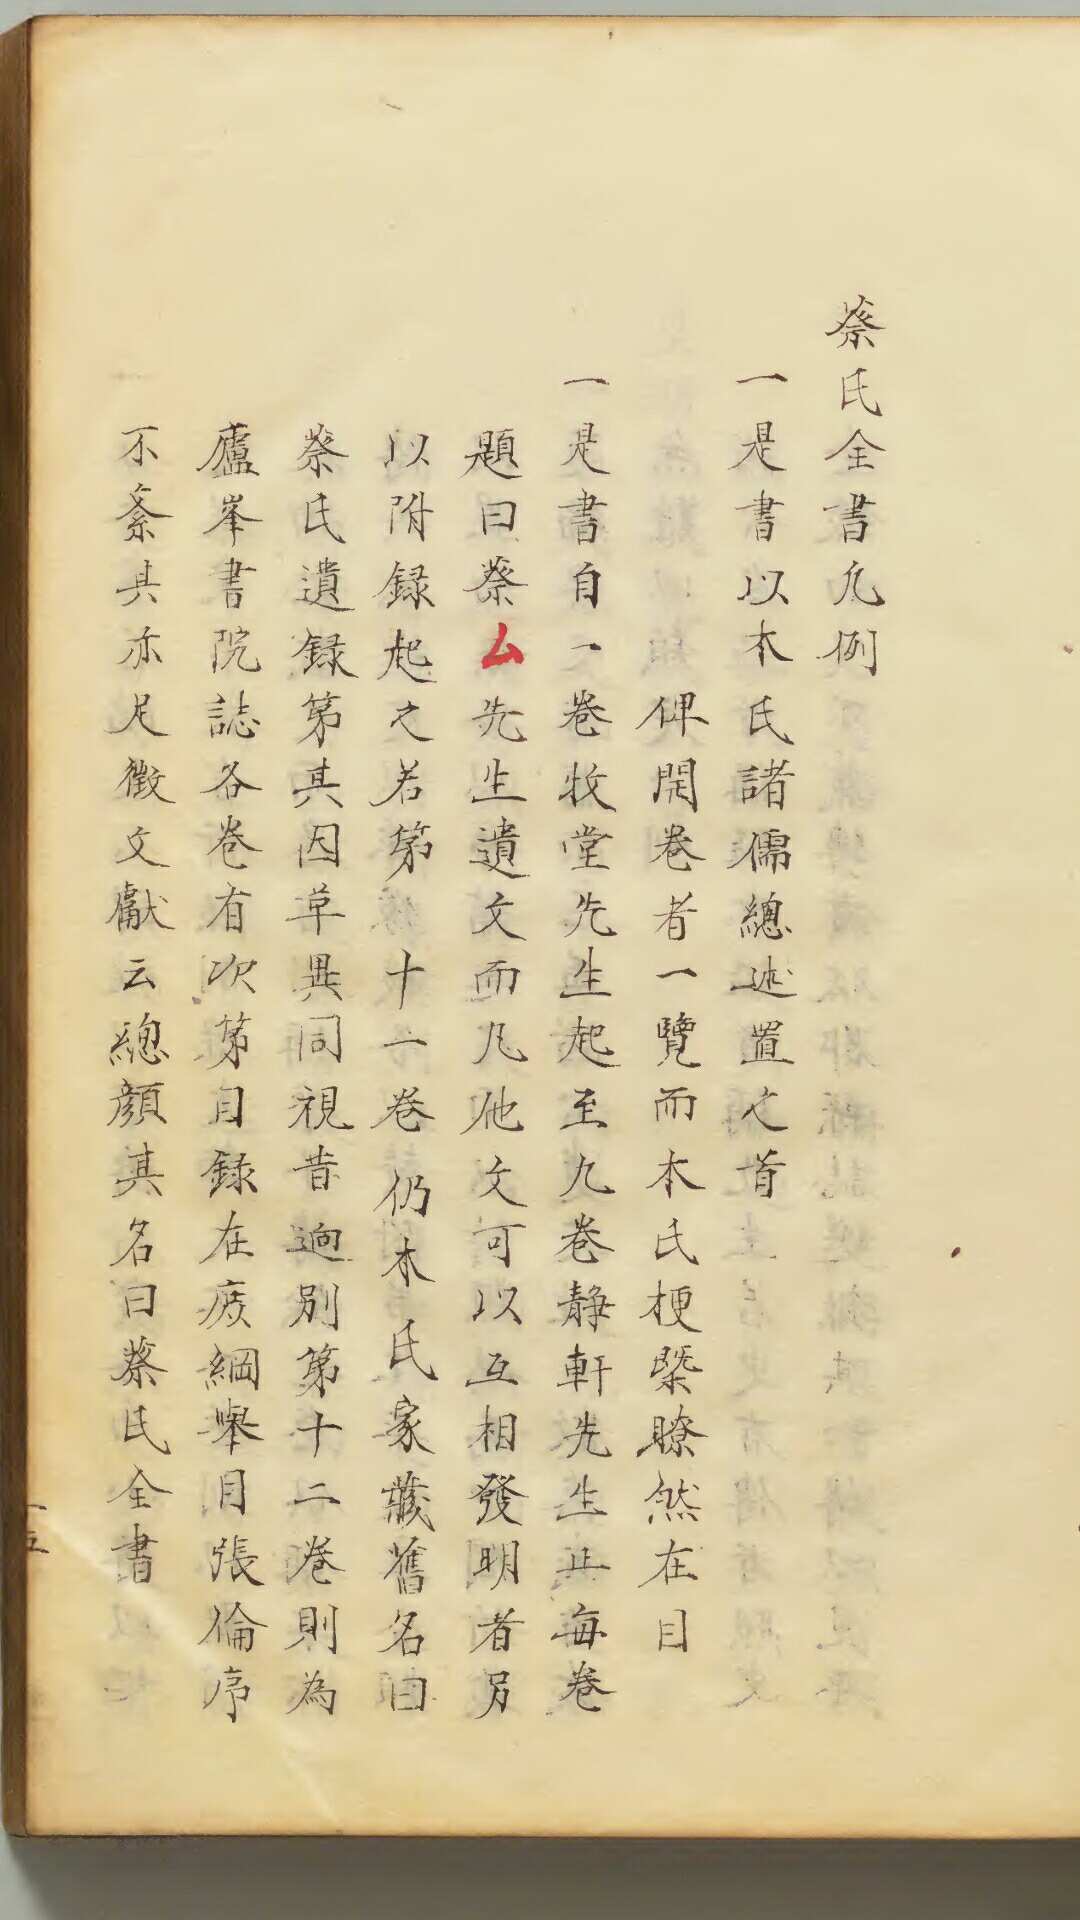 蔡氏全書凡例
一是書以本氏諸儒總述置之首
俾開卷者一覽而本氏梗槩瞭然在目
一是書自一卷牧堂先生起至九卷靜軒先生止每卷
題曰蔡厶先生遺文而凡他文可以互相發明者另
以附録起之若第十一卷仍本氏家藏舊名曰
蔡氏遺録第其因革異同視昔逈別第十二卷則為
廬峯書院誌各卷有次第目録在焉綱舉目張倫序
不紊其亦足徵文獻云總顏其名曰蔡氏全書